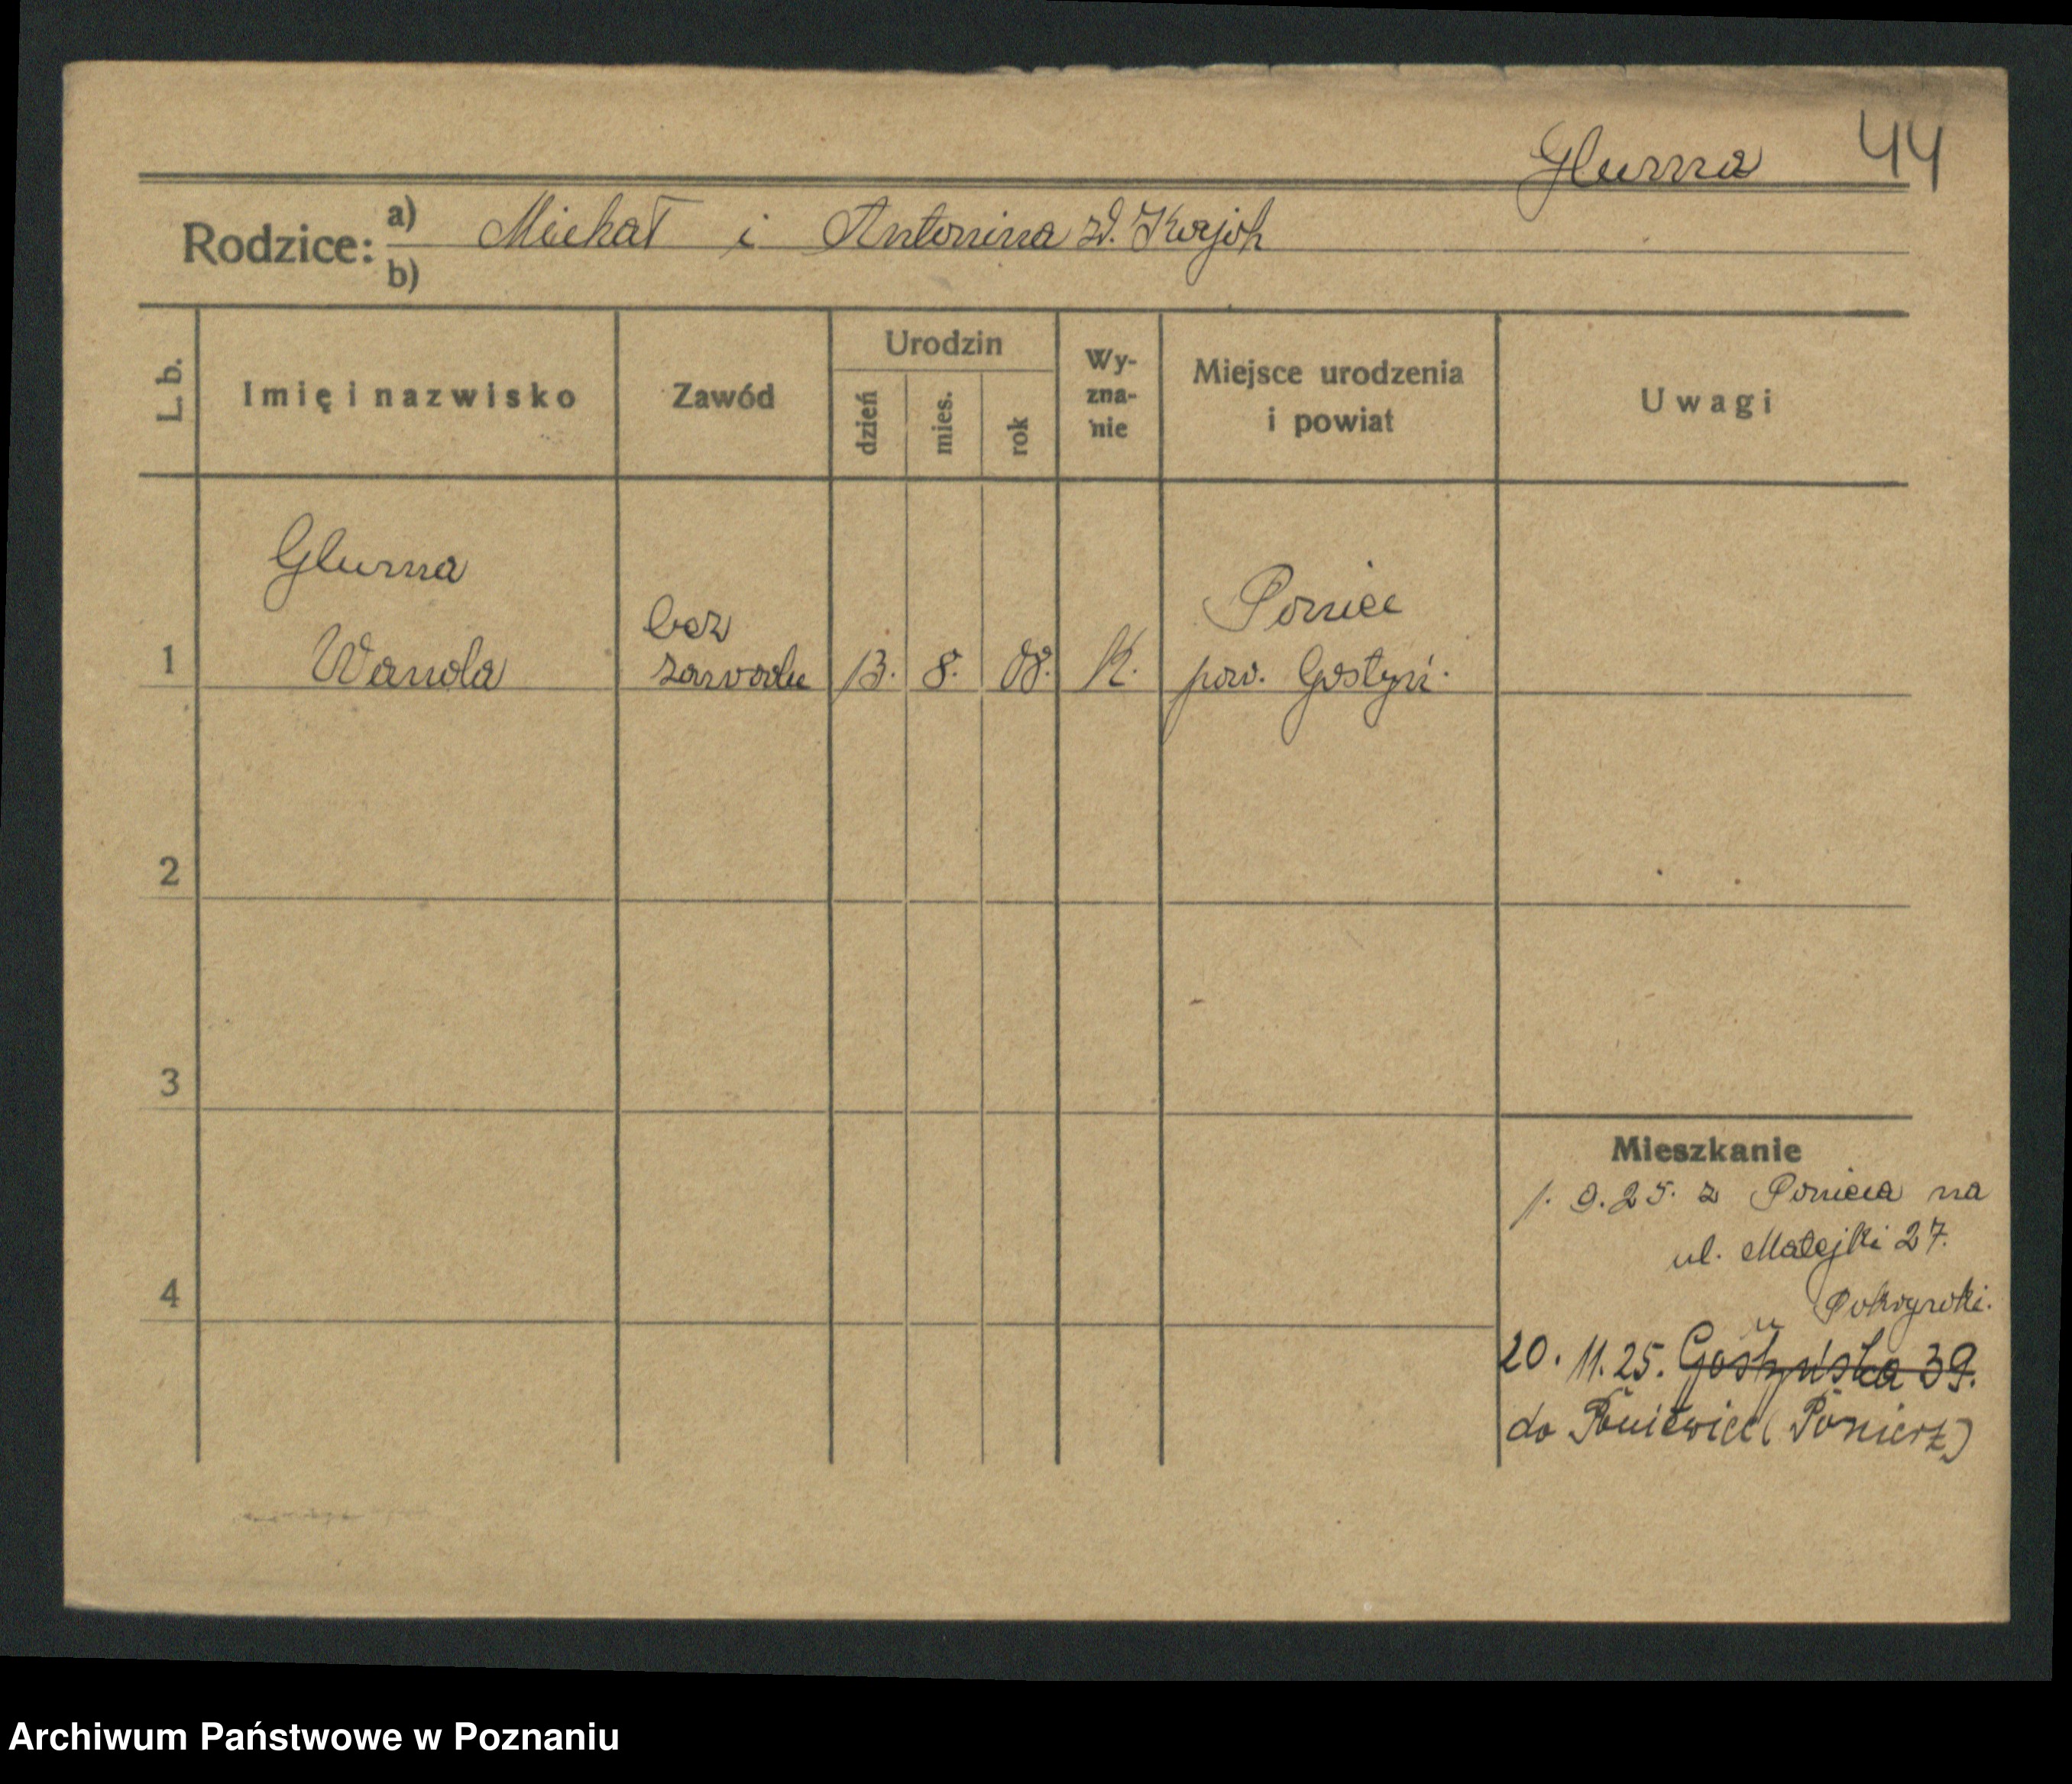 Glurna 44
Rodzice: a) Michał i Antonina zd.
b)
L. b. Imię i nazwisko Zawód Urodzin dzień mies. rok Wy-zna-nie Miejsce urodzenia i powiat Uwagi
Glurna
Wanda
bez
zawodu
1 13. 8. 08. K.
Poniec
pow. Gostyń.
2
3
4
Mieszkanie
1. 9. 25. z Ponieca na
ul. Matejki 27.
20. 11. 25. Gostyńska 39.
do
Archiwum Państwowe w Poznaniu